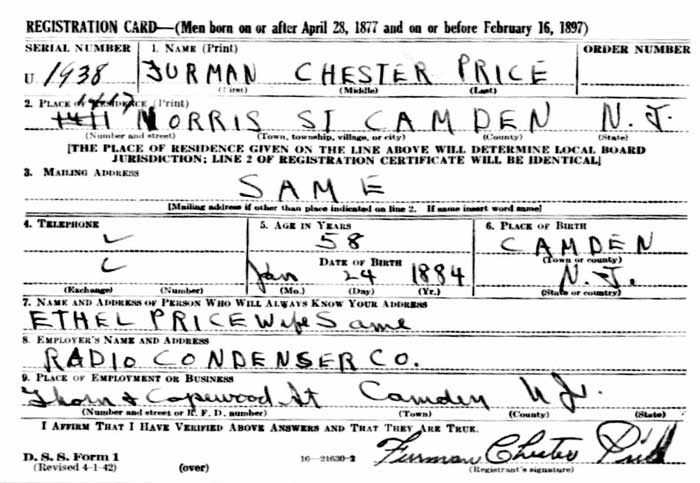 REGISTRATION CARD—(Men born on or after April 28, 1877 and on or before February 16, 1897)
SERIAL NUMBER 1. NAME (Print) ORDER NUMBER
U 1938 FURMAN CHESTER PRICE
(First) (Middle) (Last)
2. PLACE OF RESIDENCE (Print)
NORRIS ST CAMDEN N.J.
(Number and street) (Town, township, village, or city) (County) (State)
[THE PLACE OF RESIDENCE GIVEN ON THE LINE ABOVE WILL DETERMINE LOCAL BOARD
JURISDICTION; LINE 2 OF REGISTRATION CERTIFICATE WILL BE IDENTICAL]
3. MAILING ADDRESS
SAME
[Mailing address if other than place indicated on line 2. If same insert word same]
4. TELEPHONE 5. AGE IN YEARS 6. PLACE OF BIRTH
58 CAMDEN
DATE OF BIRTH (Town or county)
Jan 24 1884 N.J.
(Exchange) (Number) (Mo.) (Day) (Yr.) (State or country)
7. NAME AND ADDRESS OF PERSON WHO WILL ALWAYS KNOW YOUR ADDRESS
ETHEL PRICE Wife Same
8. EMPLOYER'S NAME AND ADDRESS
RADIO CONDENSER CO.
9. PLACE OF EMPLOYMENT OR BUSINESS
Thorn & Copewood St Camden N.J.
(Number and street or R. F. D. number) (Town) (County) (State)
I AFFIRM THAT I HAVE VERIFIED ABOVE ANSWERS AND THAT THEY ARE TRUE.
D. S. S. Form 1
(Revised 4-1-42) (over) 16—21630-2 Furman Chester Price
(Registrant's signature)